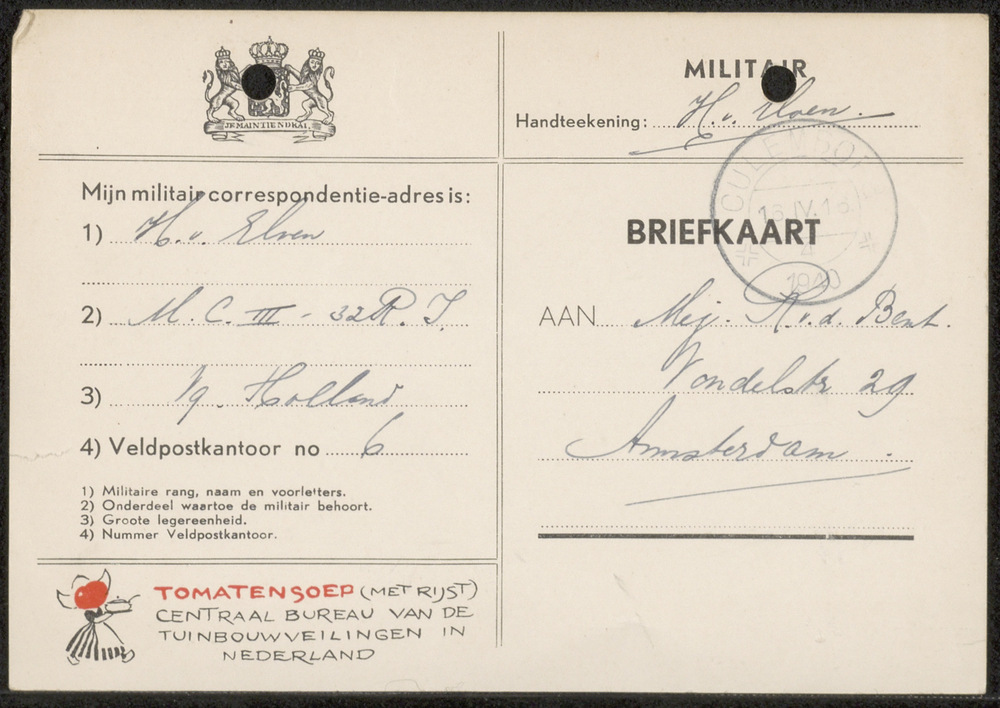 JE MAINTIENDRAI.
MILITAIR
Handteekening: H. v. Elven.
Mijn militair correspondentie-adres is:
1) H. v. Elven
2) M. C. III - 32 R. I.
3) Vg. Holland
4) Veldpostkantoor no 6
1) Militaire rang, naam en voorletters.
2) Onderdeel waartoe de militair behoort.
3) Groote legereenheid.
4) Nummer Veldpostkantoor.
TOMATENSOEP (MET RIJST)
CENTRAAL BUREAU VAN DE
TUINBOUWVEILINGEN IN
NEDERLAND
CULEMBO
IV.
4
1940
BRIEFKAART
AAN Mej. R. v. d. Bent.
Vondelstr 29
Amsterdam.